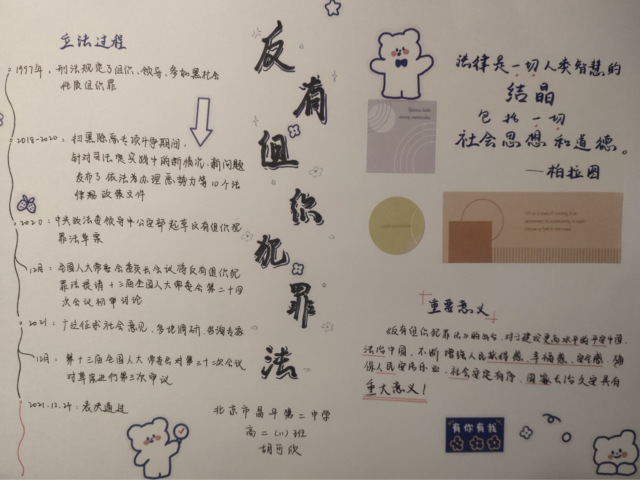 立法过程
1997年，刑法规定了组织、领导、参加黑社会
性质组织罪
2018-2020，扫黑除恶专项斗争期间，
针对司法实践中的新情况、新问题
发布了依法办理恶势力等10个法
律规政策文件
2020：中央政法委领导公安部起草反有组织犯
罪法草案
12月：全国人大常委会委员长会议将反有组织犯
罪法提请十三届全国人大常委会第二十四
次会议初审讨论
2021：广泛征求社会意见、多地调研、咨询专家
12月：第十三届全国人大常委会对第三十二次会议
对草案进行第三次审议
2021.12.24：表决通过
反有组织犯罪法
北京市昌平第二中学
高二(11)班
胡可欣
法律是一切人类智慧的
结晶
包括一切
社会思想和道德。
——柏拉图
重要意义
《反有组织犯罪法》的出台，对于建设更高水平的平安中国、
法治中国，不断增强人民获得感、幸福感、安全感，确
保人民安居乐业、社会安定有序、国家长治久安具有
重大意义！
有你有我